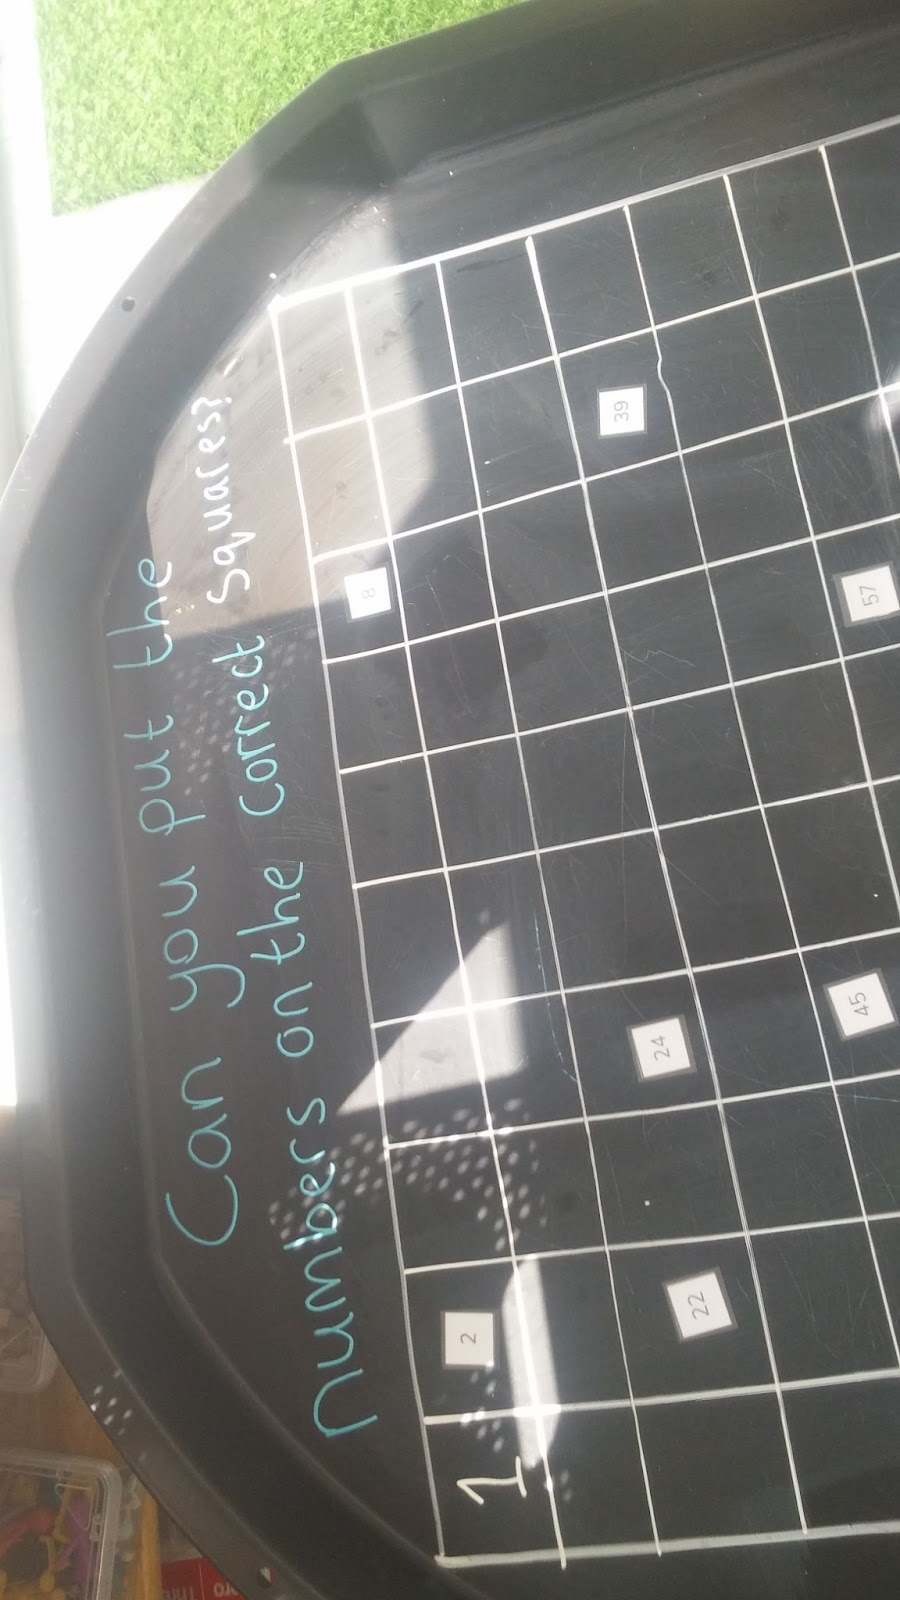 Can you put the
numbers on the correct squares?
1 2 8
22 24
39
45
57